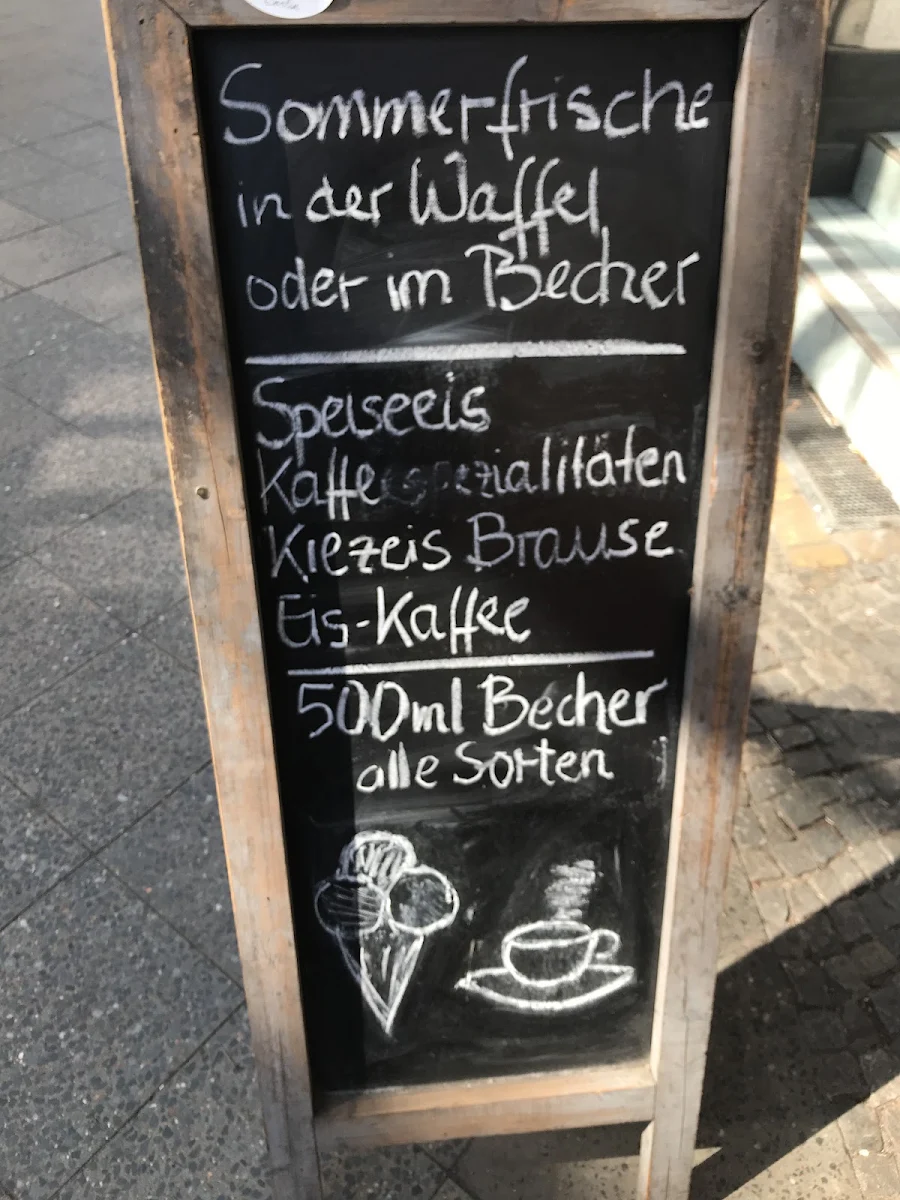 Sommerfrische
in der Waffel
oder im Becher
Speiseeis
Kaffeespezialitäten
Kiezeis Brause
Eis-Kaffee
500ml Becher
alle Sorten